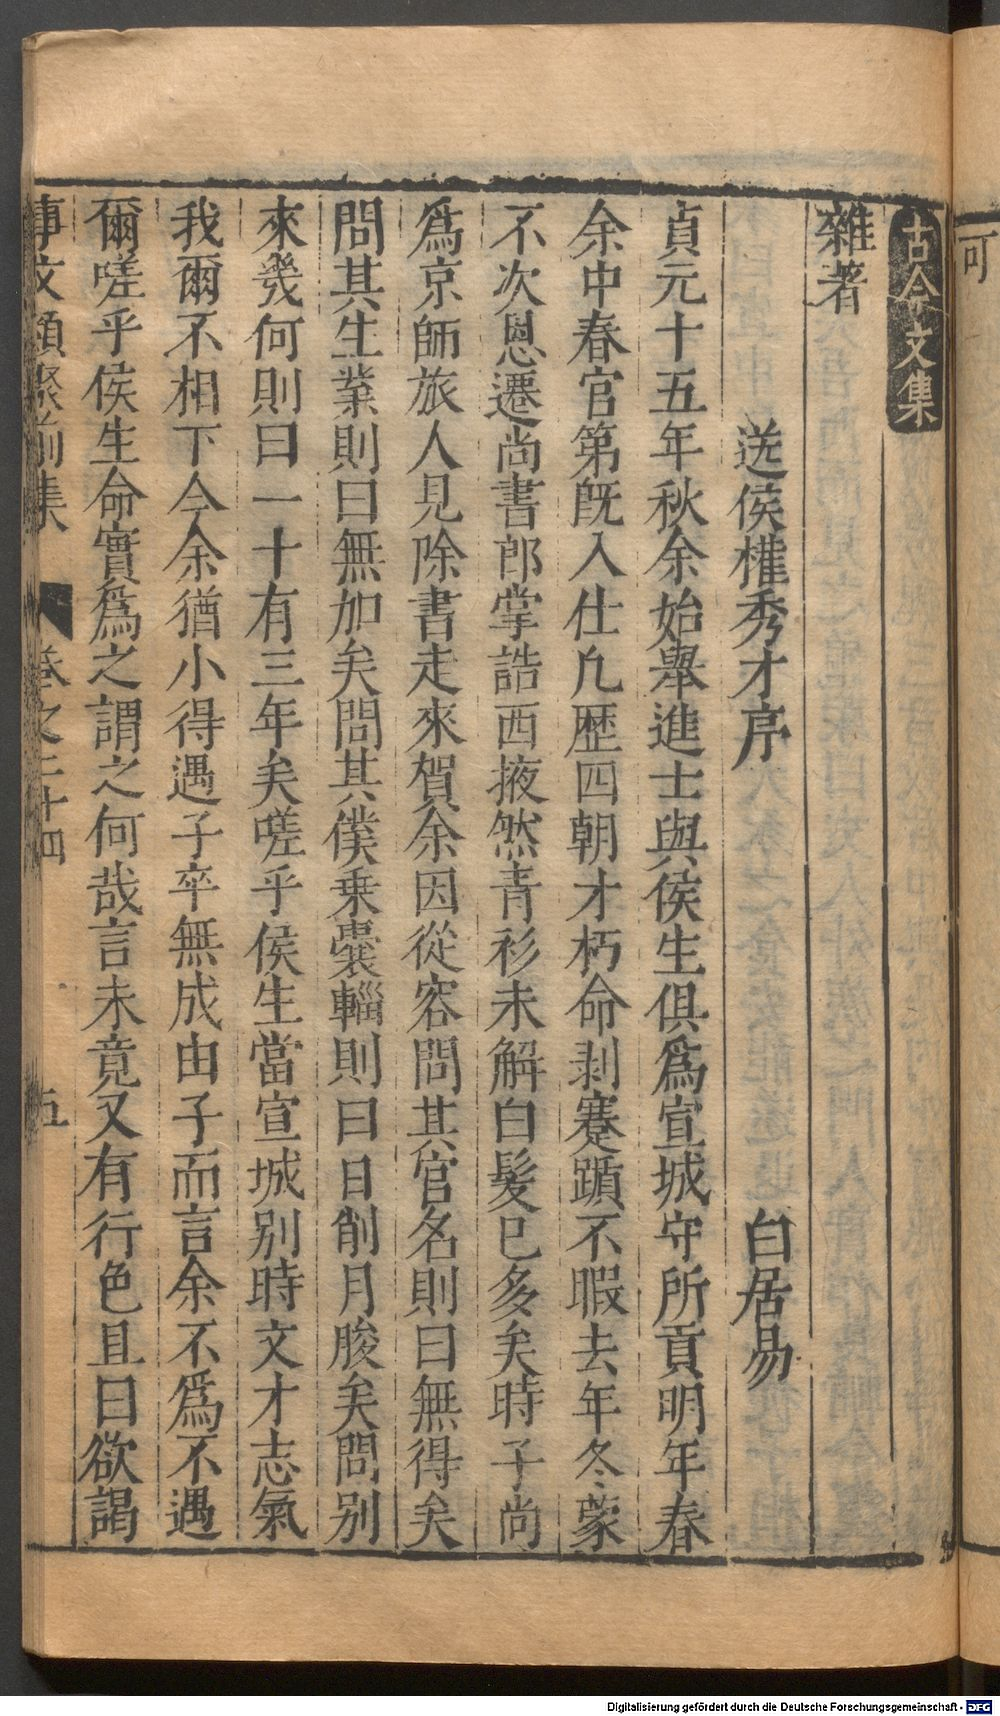 可
古今文集
雜著
送侯權秀才序　白居易
貞元十五年秋余始舉進士與侯生俱爲宣城守所貢明年春
余中春官第既入仕凢歷四朝才朽命剥蹇躓不暇去年冬蒙
不次恩遷尚書郎掌誥西掖然青衫未解白髮已多矣時子尚
爲京師旅人見除書走來賀余因從容問其官名則曰無得矣
問其生業則曰無加矣問其僕乗囊輜則曰日削月朘矣問别
來幾何則曰一十有三年矣嗟乎侯生當宣城别時文才志氣
我爾不相下今余猶小得遇子卒無成由子而言余不爲不遇
爾嗟乎侯生命實爲之謂之何哉言未竟又有行色且曰欲謁
事文類聚前集　卷之二十四　五
Digitalisierung gefördert durch die Deutsche Forschungsgemeinschaft - DFG